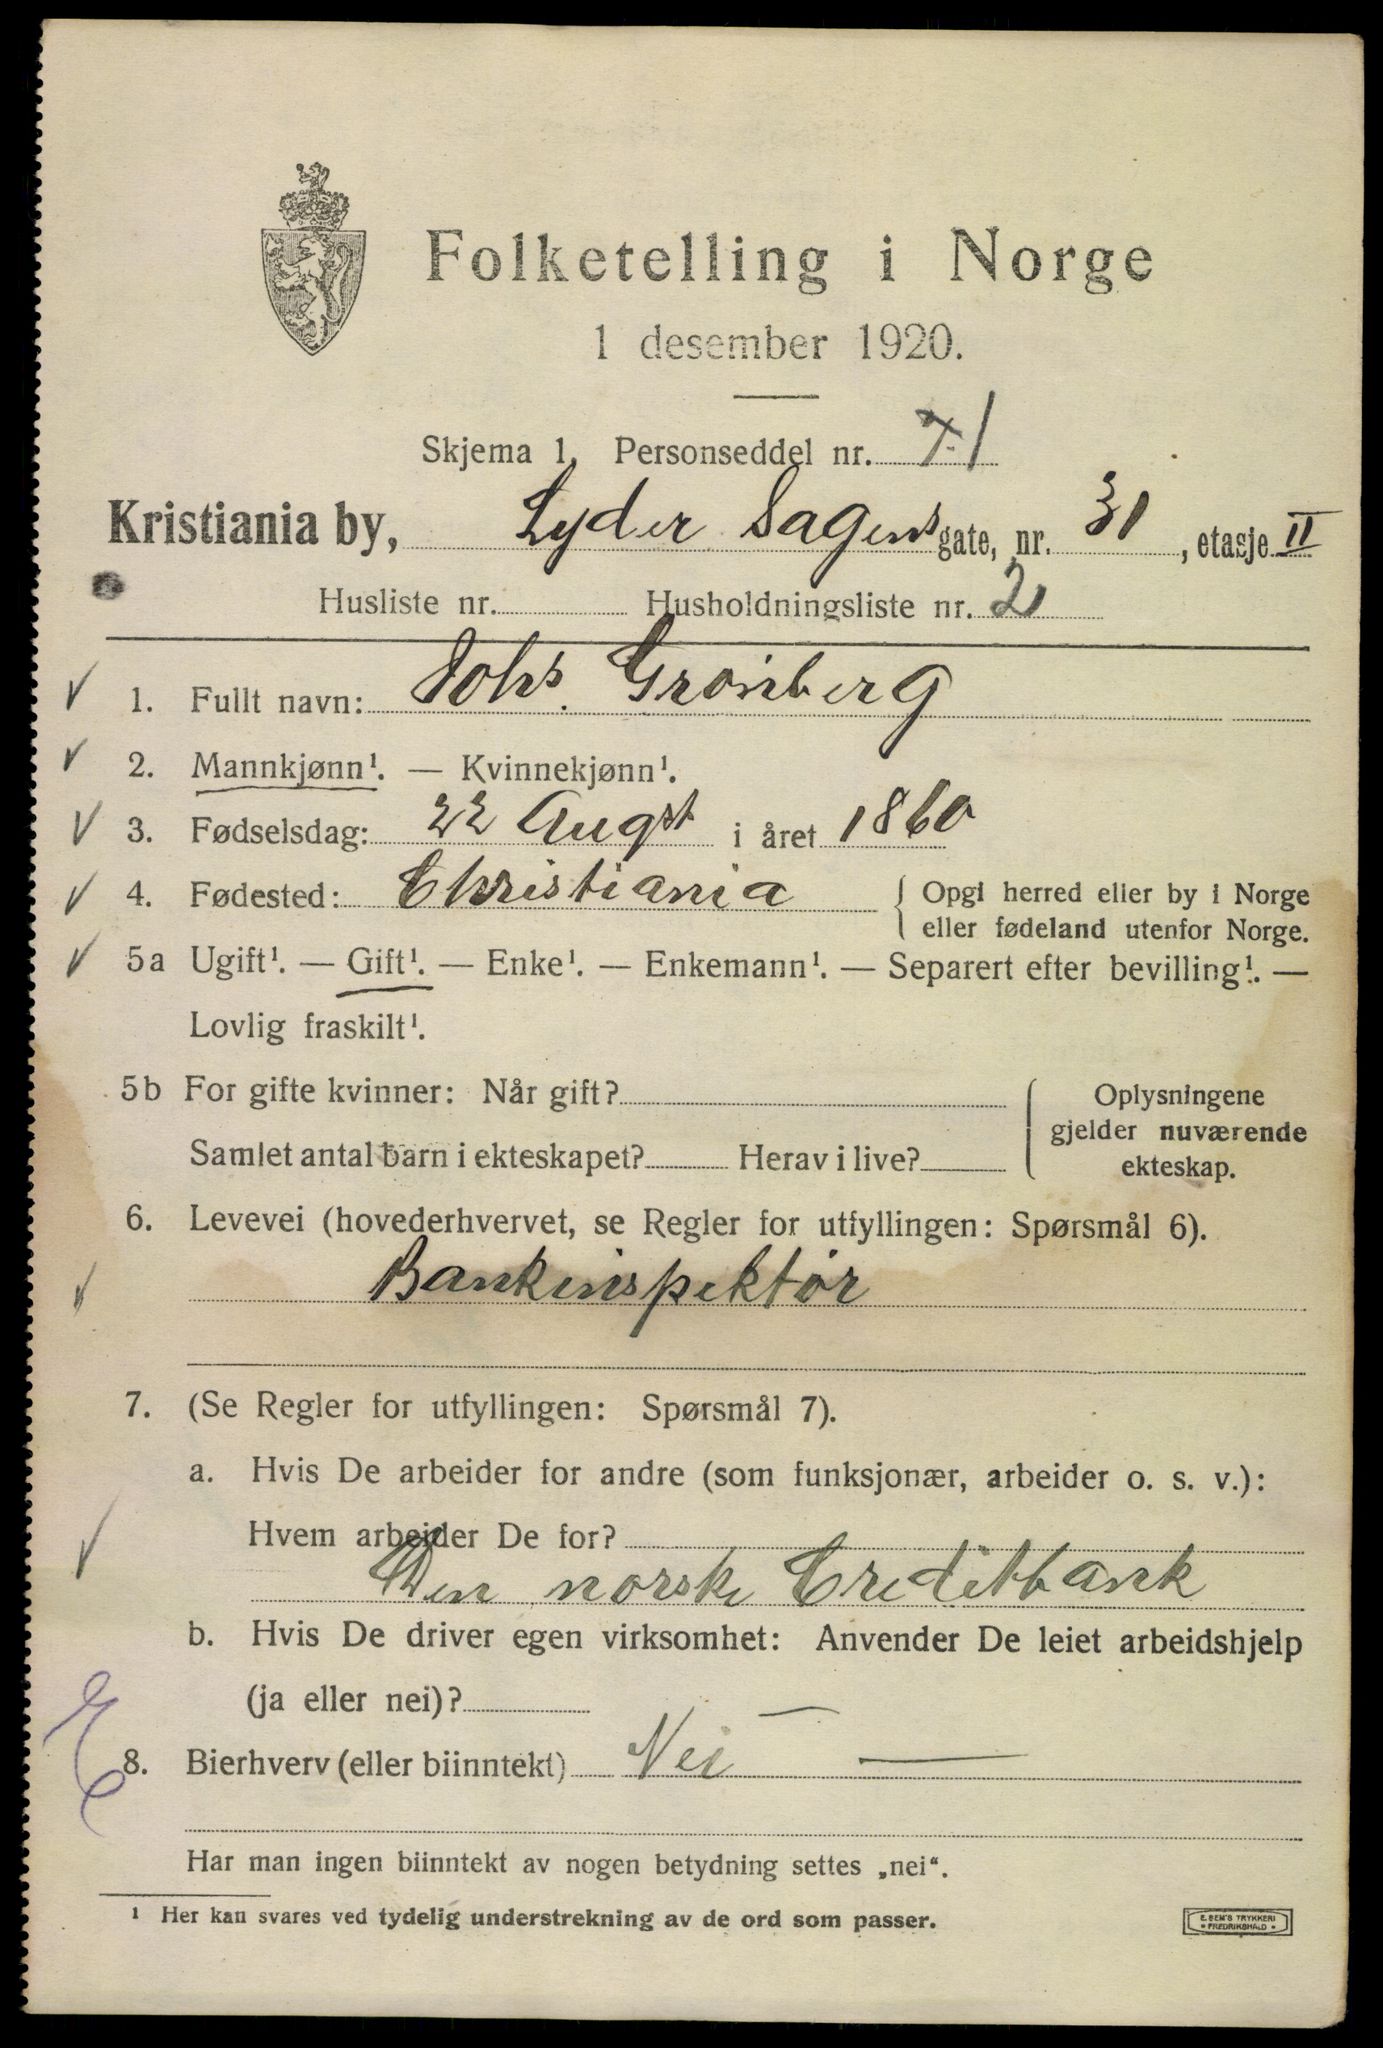 Folketelling i Norge
1 desember 1920.
Skjema 1. Personseddel nr. 1
Kristiania by, Lyder Sagens gate, nr. 31, etasje II
Husliste nr. Husholdningsliste nr. 2
1. Fullt navn: Johs. Grønberg
2. Mannkjønn¹. — Kvinnekjønn¹.
3. Fødselsdag: 22 Augst i året 1860
4. Fødested: Christiania { Opgi herred eller by i Norge
eller fødeland utenfor Norge.
5a Ugift¹. — Gift¹. — Enke¹. — Enkemann¹. — Separert efter bevilling¹. —
Lovlig fraskilt¹.
5b For gifte kvinner: Når gift? { Oplysningene
gjelder nuværende
Samlet antal barn i ekteskapet? Herav i live?
ekteskap.
6. Levevei (hovederhvervet, se Regler for utfyllingen: Spørsmål 6).
Bankinspektør
7. (Se Regler for utfyllingen: Spørsmål 7).
a. Hvis De arbeider for andre (som funksjonær, arbeider o. s. v.):
Hvem arbeider De for?
Den norske Creditbank
b. Hvis De driver egen virksomhet: Anvender De leiet arbeidshjelp
(ja eller nei)?
8. Bierhverv (eller biinntekt) Nei —
Har man ingen biinntekt av nogen betydning settes „nei“.
¹ Her kan svares ved tydelig understrekning av de ord som passer.
E. SEM'S TRYKKERI
• FREDRIKSHALD •